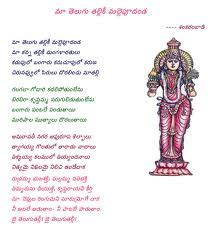 మా తెలుగు తల్లికి మల్లెపూదండ
--- శంకరంబాడి
మా తెలుగు తల్లికి మల్లెపూదండ
మా కన్న తల్లికి మంగళారతులు
కడుపులో బంగారు కనుచూపులో కరుణ
చిరునవ్వులో సిరులు దొరలించు మాతల్లి
గలగలా గోదారి కదలిపోతుంటేను
బిరబిరా కృష్ణమ్మ పరుగులిడుతుంటేను
బంగారు పంటలే పండుతాయి
మురిపాల ముత్యాలు దొరలుతాయి
అమరావతీ నగర అపురూప శిల్పాలు
త్యాగయ్య గొంతులో తారాడు నాదాలు
తిక్కయ్య కలములో తియ్యందనాలు
నిత్యమై నిఖిలమై నిలచి ఉండేదాక
రుద్రమ్మ భుజశక్తి, మల్లమ్మ పతిభక్తి
తిమ్మరుసు ధీయుక్తి, కృష్ణరాయల కీర్తి
మా చెవుల రింగుమని మారుమ్రోగే దాక
నీ ఆటలే ఆడుతాం - నీ పాటలే పాడుతాం
జై తెలుగుతల్లి! జై తెలుగుతల్లి!